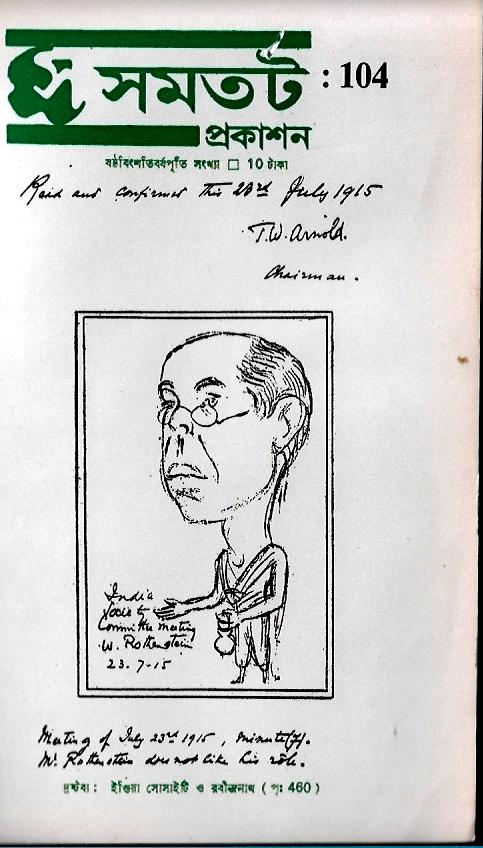 সমতট : 104
প্রকাশন
ষষ্ঠবিংশতিবর্ষপূর্তি সংখ্যা □ 10 টাকা
Read and confirmed this 23rd July 1915
T.W. Arnold.
Chairman.
India
Society
Committee meeting
W. Rothenstein
23-7-15
Meeting of July 23rd 1915, minute
Mr Rothenstein does not like his rôle.
দ্রষ্টব্য : ইণ্ডিয়া সোসাইটি ও রবীন্দ্রনাথ ( পৃ: 460 )